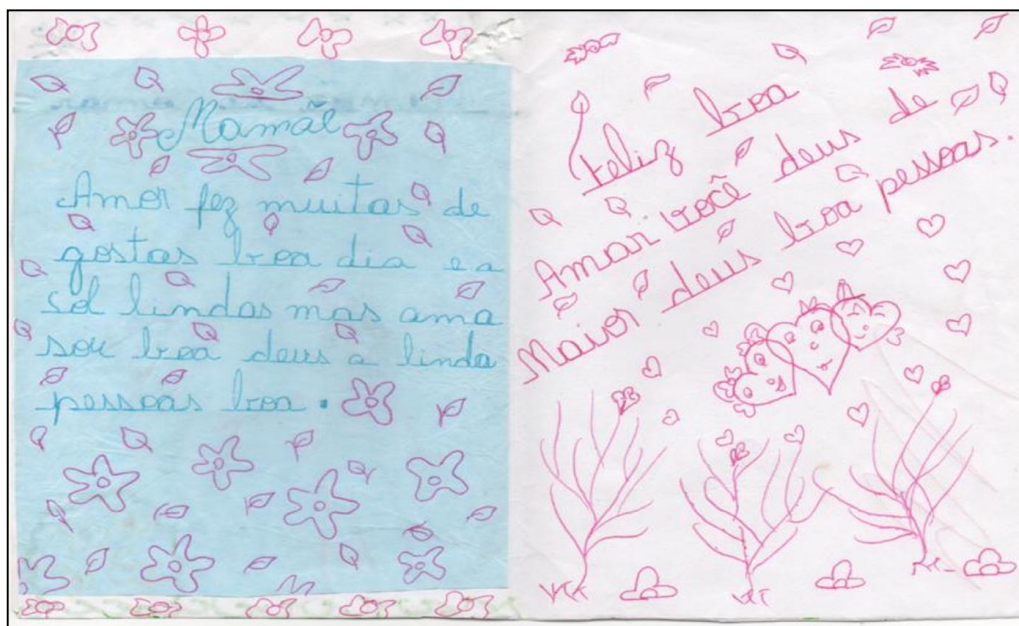 Mamãe
Amor fez muitas de
gostas boa dia e a
sol lindas mas ama
sou boa deus a linda
pessoas boa.
Feliz boa
Amar você deus de
Maior deus boa pessoas.